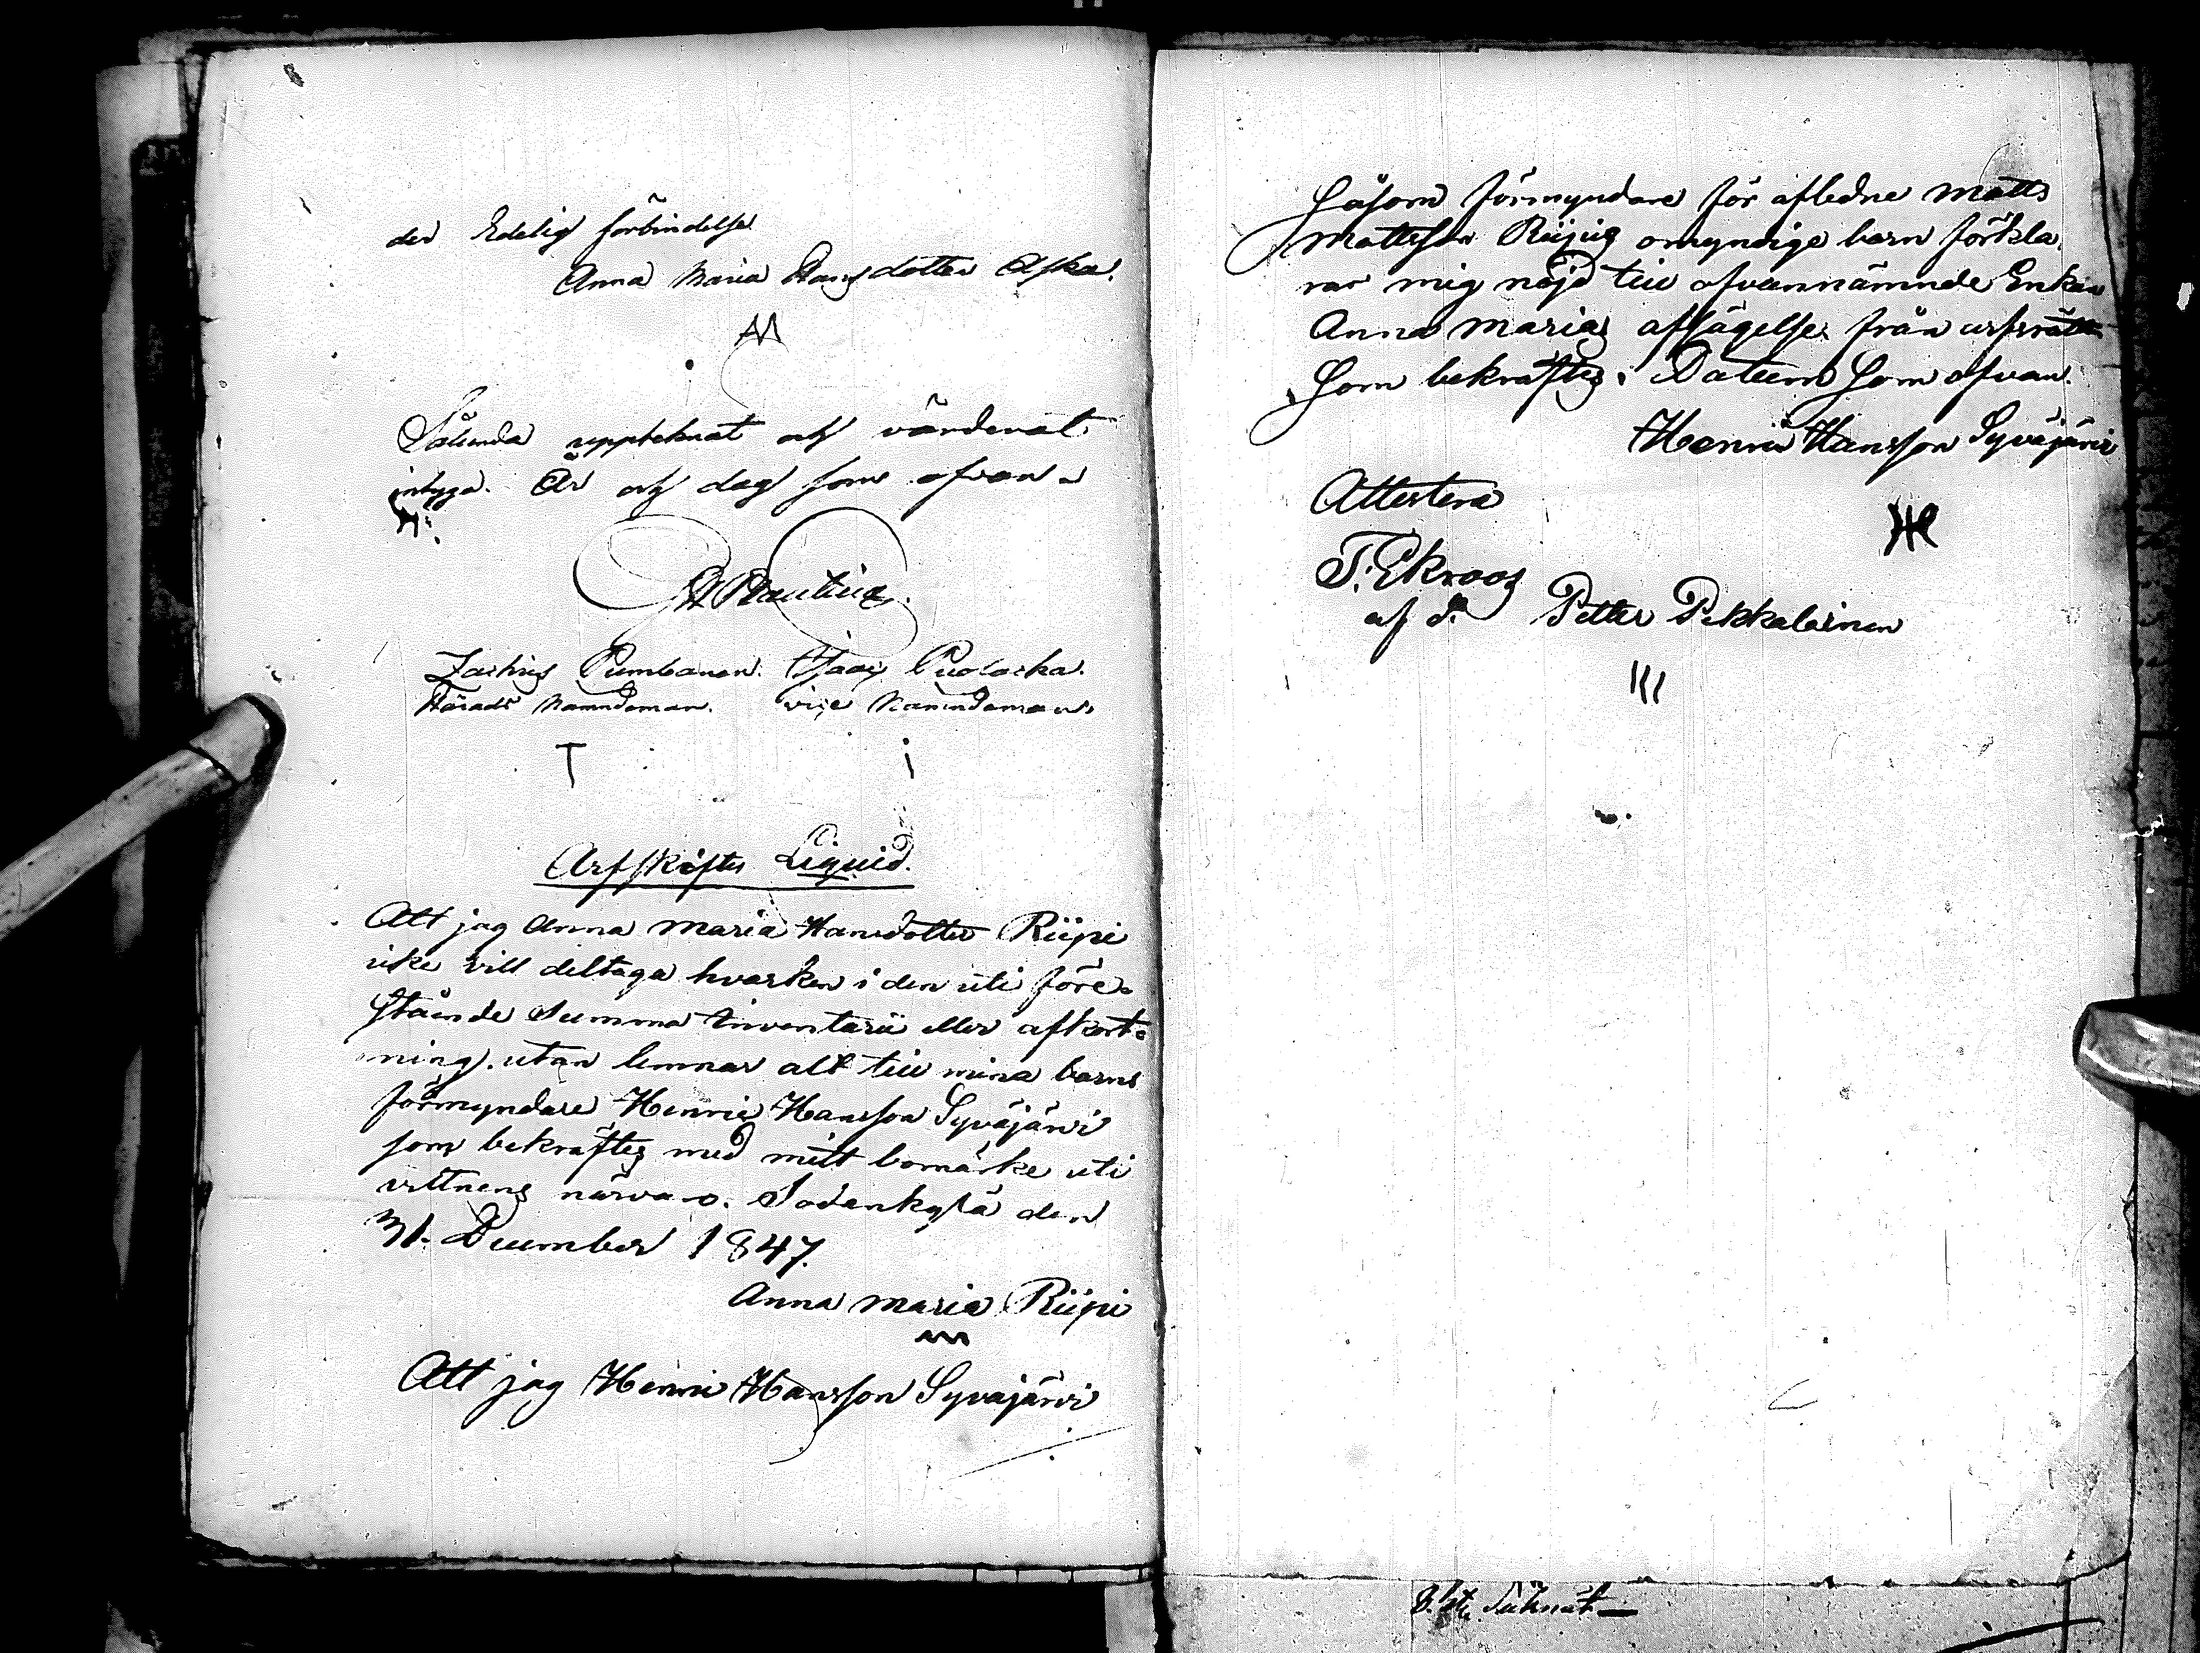 der Edelig förbindelse
Anna Maria Hansdotter Aska.
Sålunda uppteknat och värderat
intyga. År och dag som ofvan.
Zachris Pumbanen. Isaac Puolacka.
Härads Nämndeman. vise Nämndeman.
T i
Arfskiftes Liquid.
Att jag Anna Maria Hansdotter Riipi
icke vill deltaga hvarken i den uti före-
stående Summa Inventarii eller afkort-
ning, utan lemnar alt till mina barns
förmyndare Henric Hansson Syväjärvi
som bekräftes med mitt bomärke uti
vittnens närvaro. Sodankylä den
31. December 1847.
Anna Maria Riipi
Att jag Henric Hansson Syväjärvi
Såsom förmyndare för afledne Matts
Mattsson Riipis omyndige barn förkla
rar mig nöjd till ofvannämnde Enkan
Anna Marias afsägelse från arfsrätt
Som bekräftes. Datum Som ofvan.
Henric Hansson Syväjärvi
Attestera
T. Ekroos
af d. Petter Pekkalainen
III